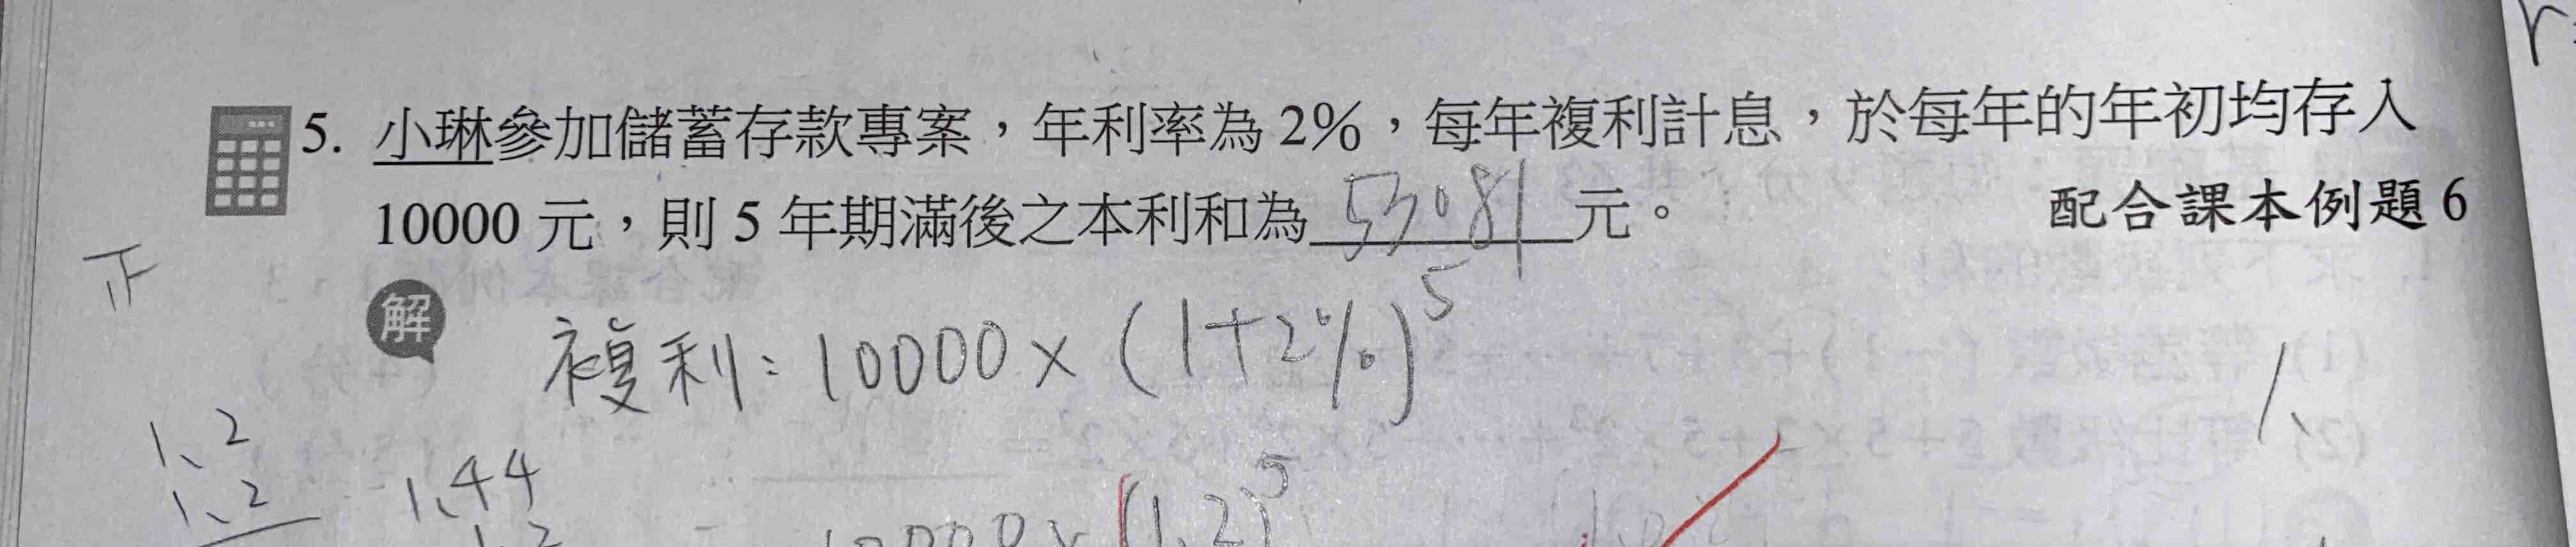 5. 小琳參加儲蓄存款專案，年利率為 2%，每年複利計息，於每年的年初均存入
10000 元，則 5 年期滿後之本利和為 53081 元。
配合課本例題 6
正
解
複利：10000 × (1+2%)⁵
1.2
1.2
1.44
1.2
10000 × (1.2)⁵